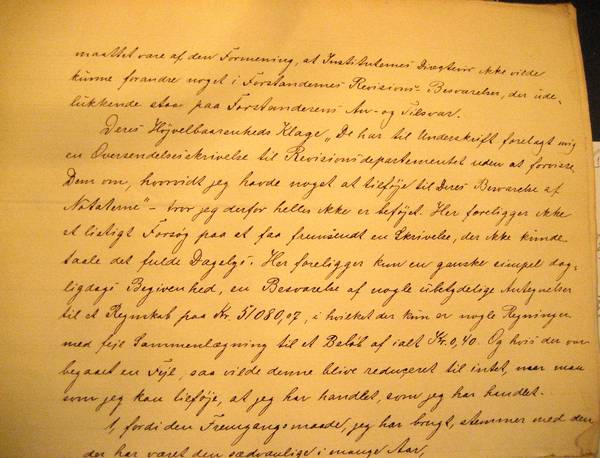 maattet være af den Formening, at Instituternes Direktør ikke vilde
kunne forandre noget i Forstandernes Revisions-Besvarelse, der ude-
lukkende staar paa Forstanderens An- og Tilsvar.
Deres Højvelbaarenheds Klage „De har til Underskrift forelagt mig
en Oversendelsesskrivelse til Revisionsdepartementet uden at forvisse
Dem om, hvorvidt jeg havde noget at tilføje til Deres Besvarelse af
Notaterne" – tror jeg derfor heller ikke er beføjet. Her foreligger ikke
et listigt Forsøg paa at faa fremsendt en Skrivelse, der ikke kunde
taale det fulde Dagslys. Her foreligger kun en ganske simpel dag-
ligdags Begivenhed, en Besvarelse af nogle ubetydelige Antegnelser
til et Regnskab paa Kr. 51080,07, i hvilket der kun er nogle Regninger
med fejl Sammenlægning til et Beløb af ialt Kr. 0,40. Og hvis der var
begaaet en Fejl, saa vilde denne blive reduceret til intet, naar man
som jeg kan tilføje, at jeg har handlet, som jeg har handlet.
1, fordi den Fremgangsmaade, jeg har brugt, stemmer med den
der har været den sædvanlige i mange Aar,